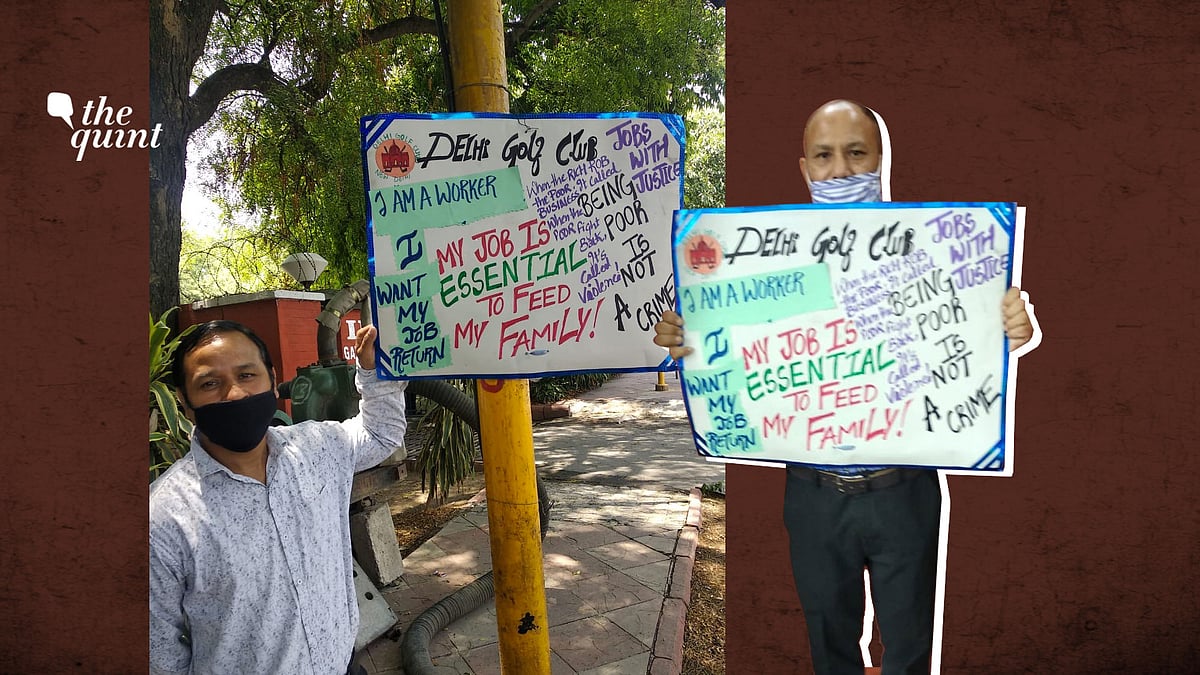 the
quint
DELHI GOLF CLUB
NEW DELHI
DELHi GOLF CLUB
JOBS
WITH
JUSTICE
I AM A WORKER
I
WANT
MY
JOB
RETURN
MY JOB IS
ESSENTIAL
TO FEED
MY FAMILY!
When the RICH ROB
the POOR, it called
BUSINESS
When the
POOR Fight
Back,
It's
Called
Violence
BEING
POOR
IS
NOT
A CRIME
DELHi GOLF CLUB
JOBS
WITH
JUSTICE
I AM A WORKER
I
WANT
MY
JOB
RETURN
MY JOB IS
ESSENTIAL
TO FEED
MY FAMILY!
When the RICH ROB
the POOR, it called
BUSINESS
When the
POOR Fight
Back,
It's
Called
Violence
BEING
POOR
IS
NOT
A CRIME